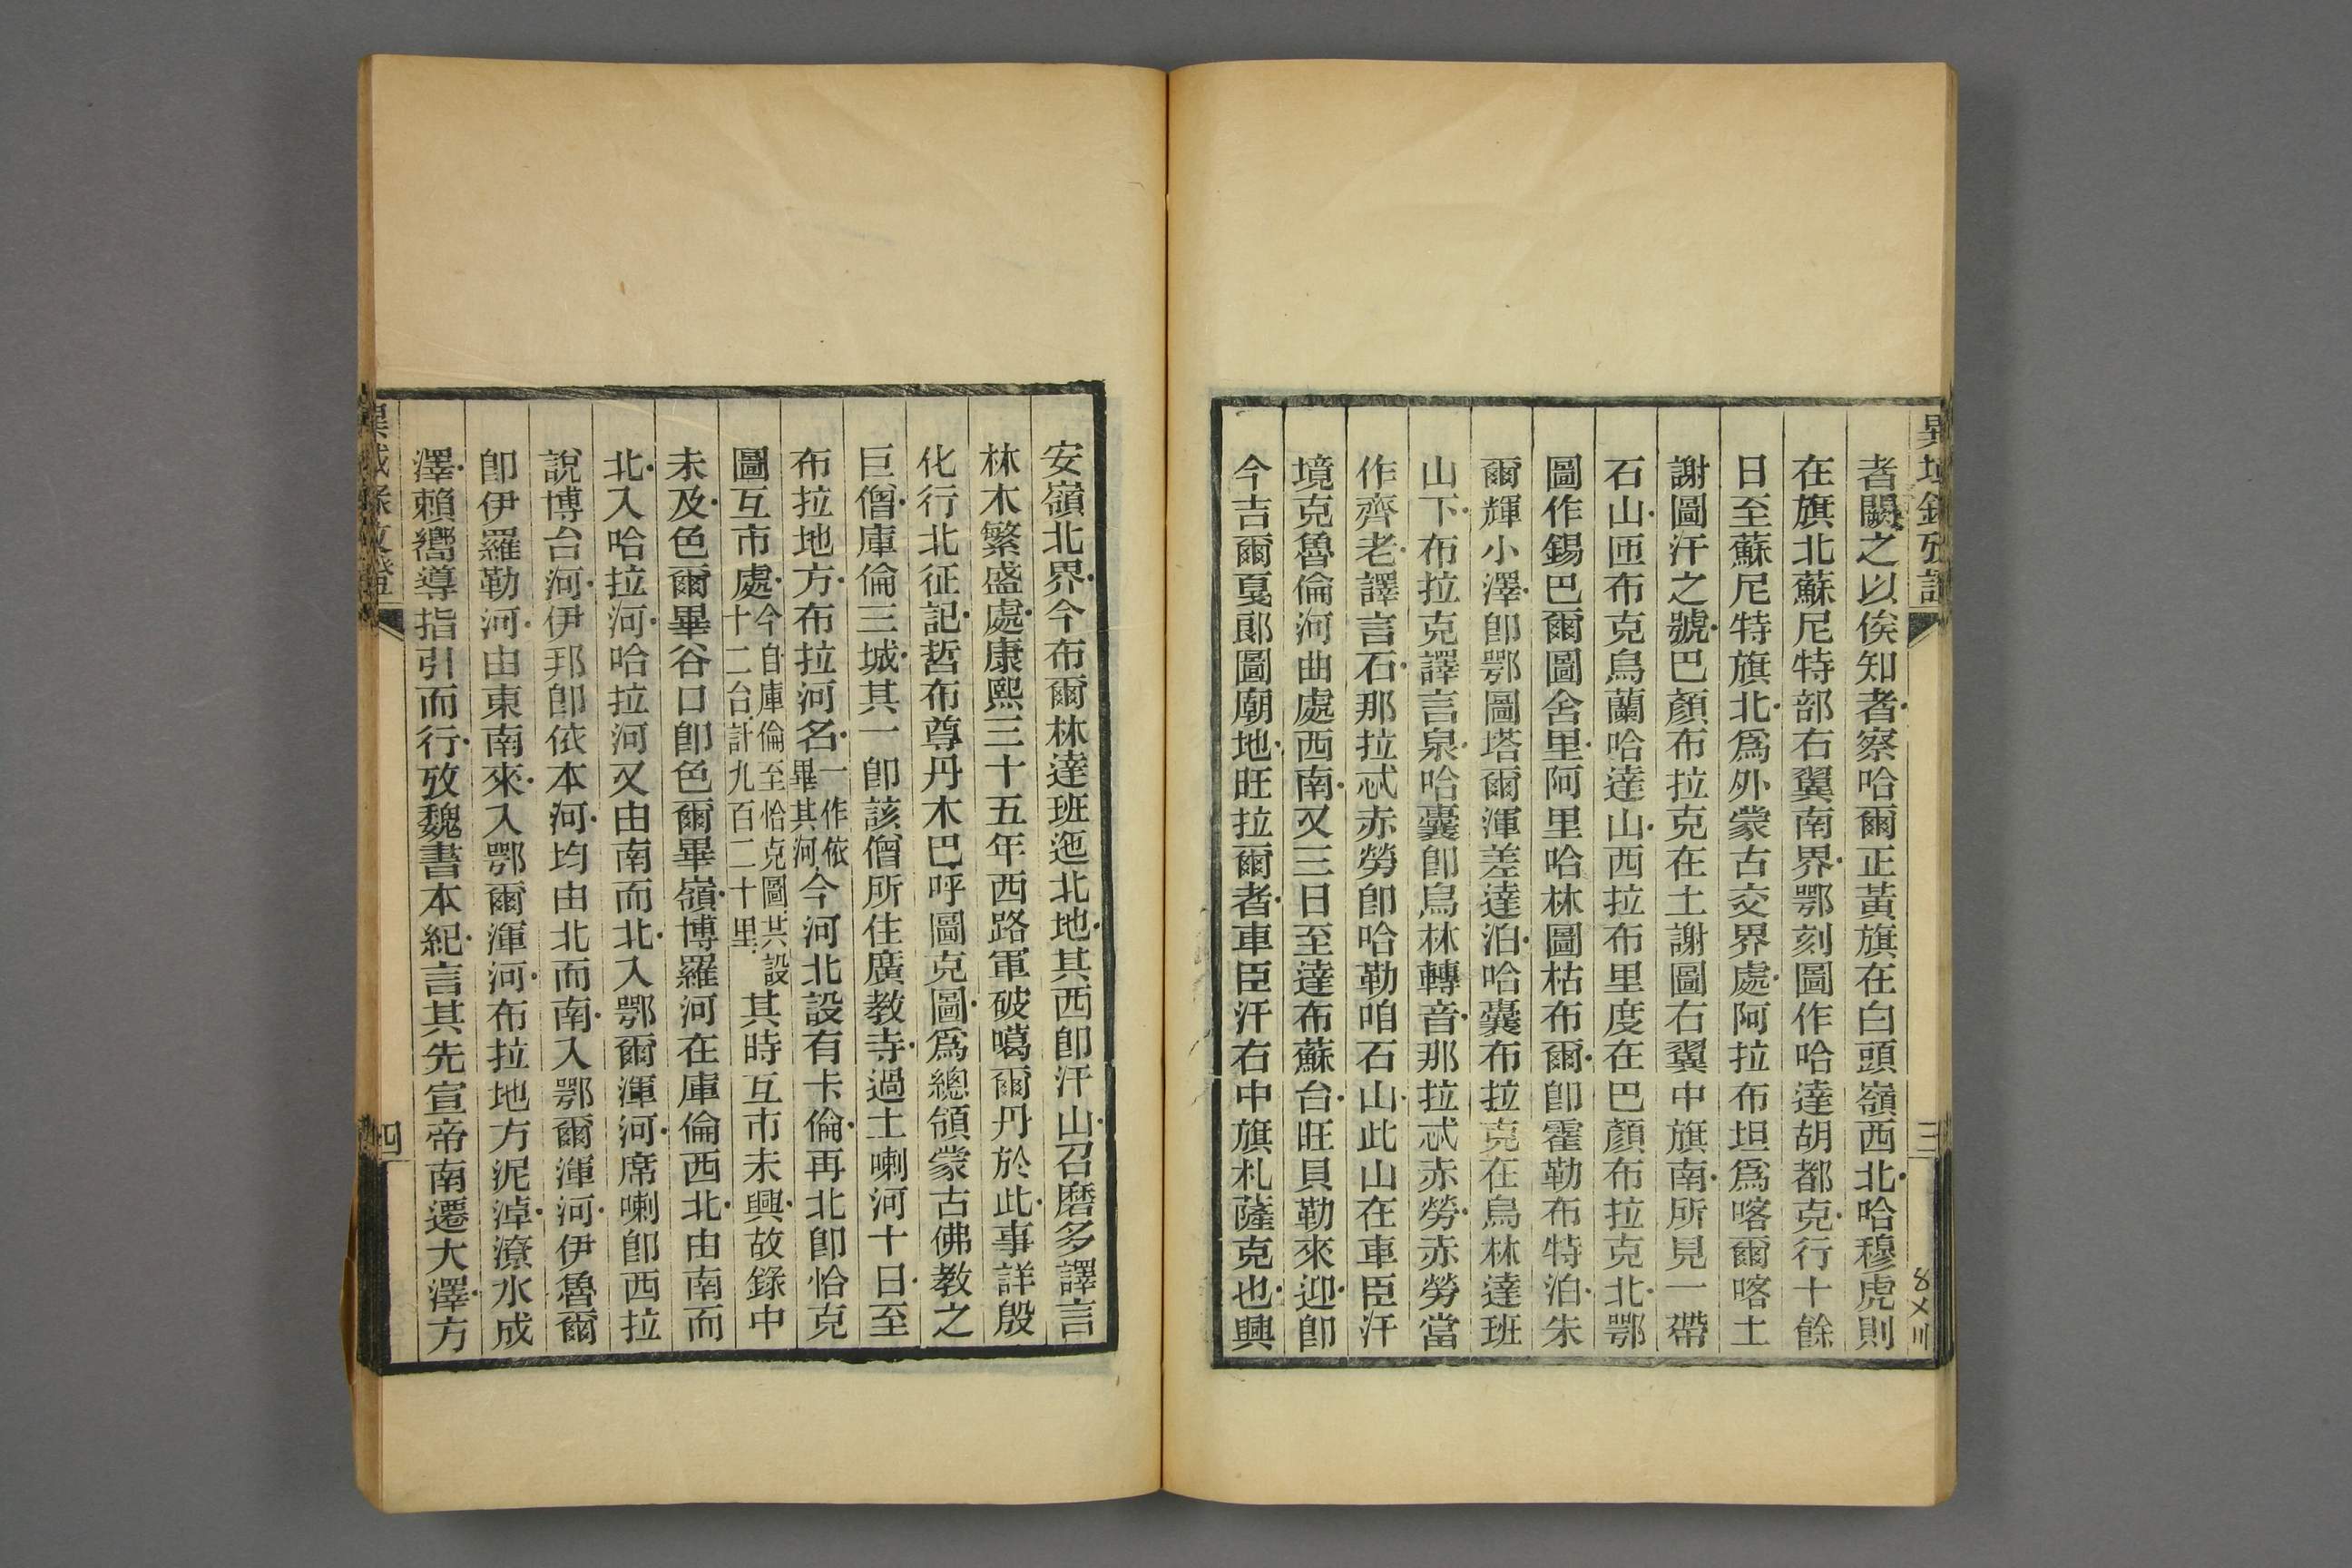 者闕之以俟知者察哈爾正黃旗在白頭嶺西北哈穆虎則
在旗北蘇尼特部右翼南界鄂刻圖作哈達胡都克行十餘
日至蘇尼特旗北爲外蒙古交界處阿拉布坦爲喀爾喀土
謝圖汗之號巴顏布拉克在土謝圖右翼中旗南所見一帶
石山匝布克烏蘭哈達山西拉布里度在巴顏布拉克北鄂
圖作錫巴爾圖舍里阿里哈林圖枯布爾卽霍勒布特泊朱
爾輝小澤卽鄂圖塔爾渾差達泊哈囊布拉克在烏林達班
山下布拉克譯言泉哈囊卽烏林轉音那拉忒赤勞赤勞當
作齊老譯言石那拉忒赤勞卽哈勒咱石山此山在車臣汗
境克魯倫河曲處西南又三日至達布蘇台旺貝勒來迎卽
今吉爾戛郎圖廟地旺拉爾者車臣汗右中旗札薩克也興
三
安嶺北界今布爾林達班迤北地其西卽汗山召磨多譯言
林木繁盛處康熙三十五年西路軍破噶爾丹於此事詳殷
化行北征記哲布尊丹木巴呼圖克圖爲總領蒙古佛教之
巨僧庫倫三城其一卽該僧所住廣教寺過土喇河十日至
布拉地方布拉河名一作依畢其河今河北設有卡倫再北卽恰克
圖互市處今自庫倫至恰克圖共設十二台計九百二十里其時互市未興故錄中
未及色爾畢谷口卽色爾畢嶺博羅河在庫倫西北由南而
北入哈拉河哈拉河又由南而北入鄂爾渾河席喇卽西拉
說博台河伊邦卽依本河均由北而南入鄂爾渾河伊魯爾
卽伊羅勒河由東南來入鄂爾渾河布拉地方泥淖潦水成
澤賴嚮導指引而行攷魏書本紀言其先宣帝南遷大澤方
四